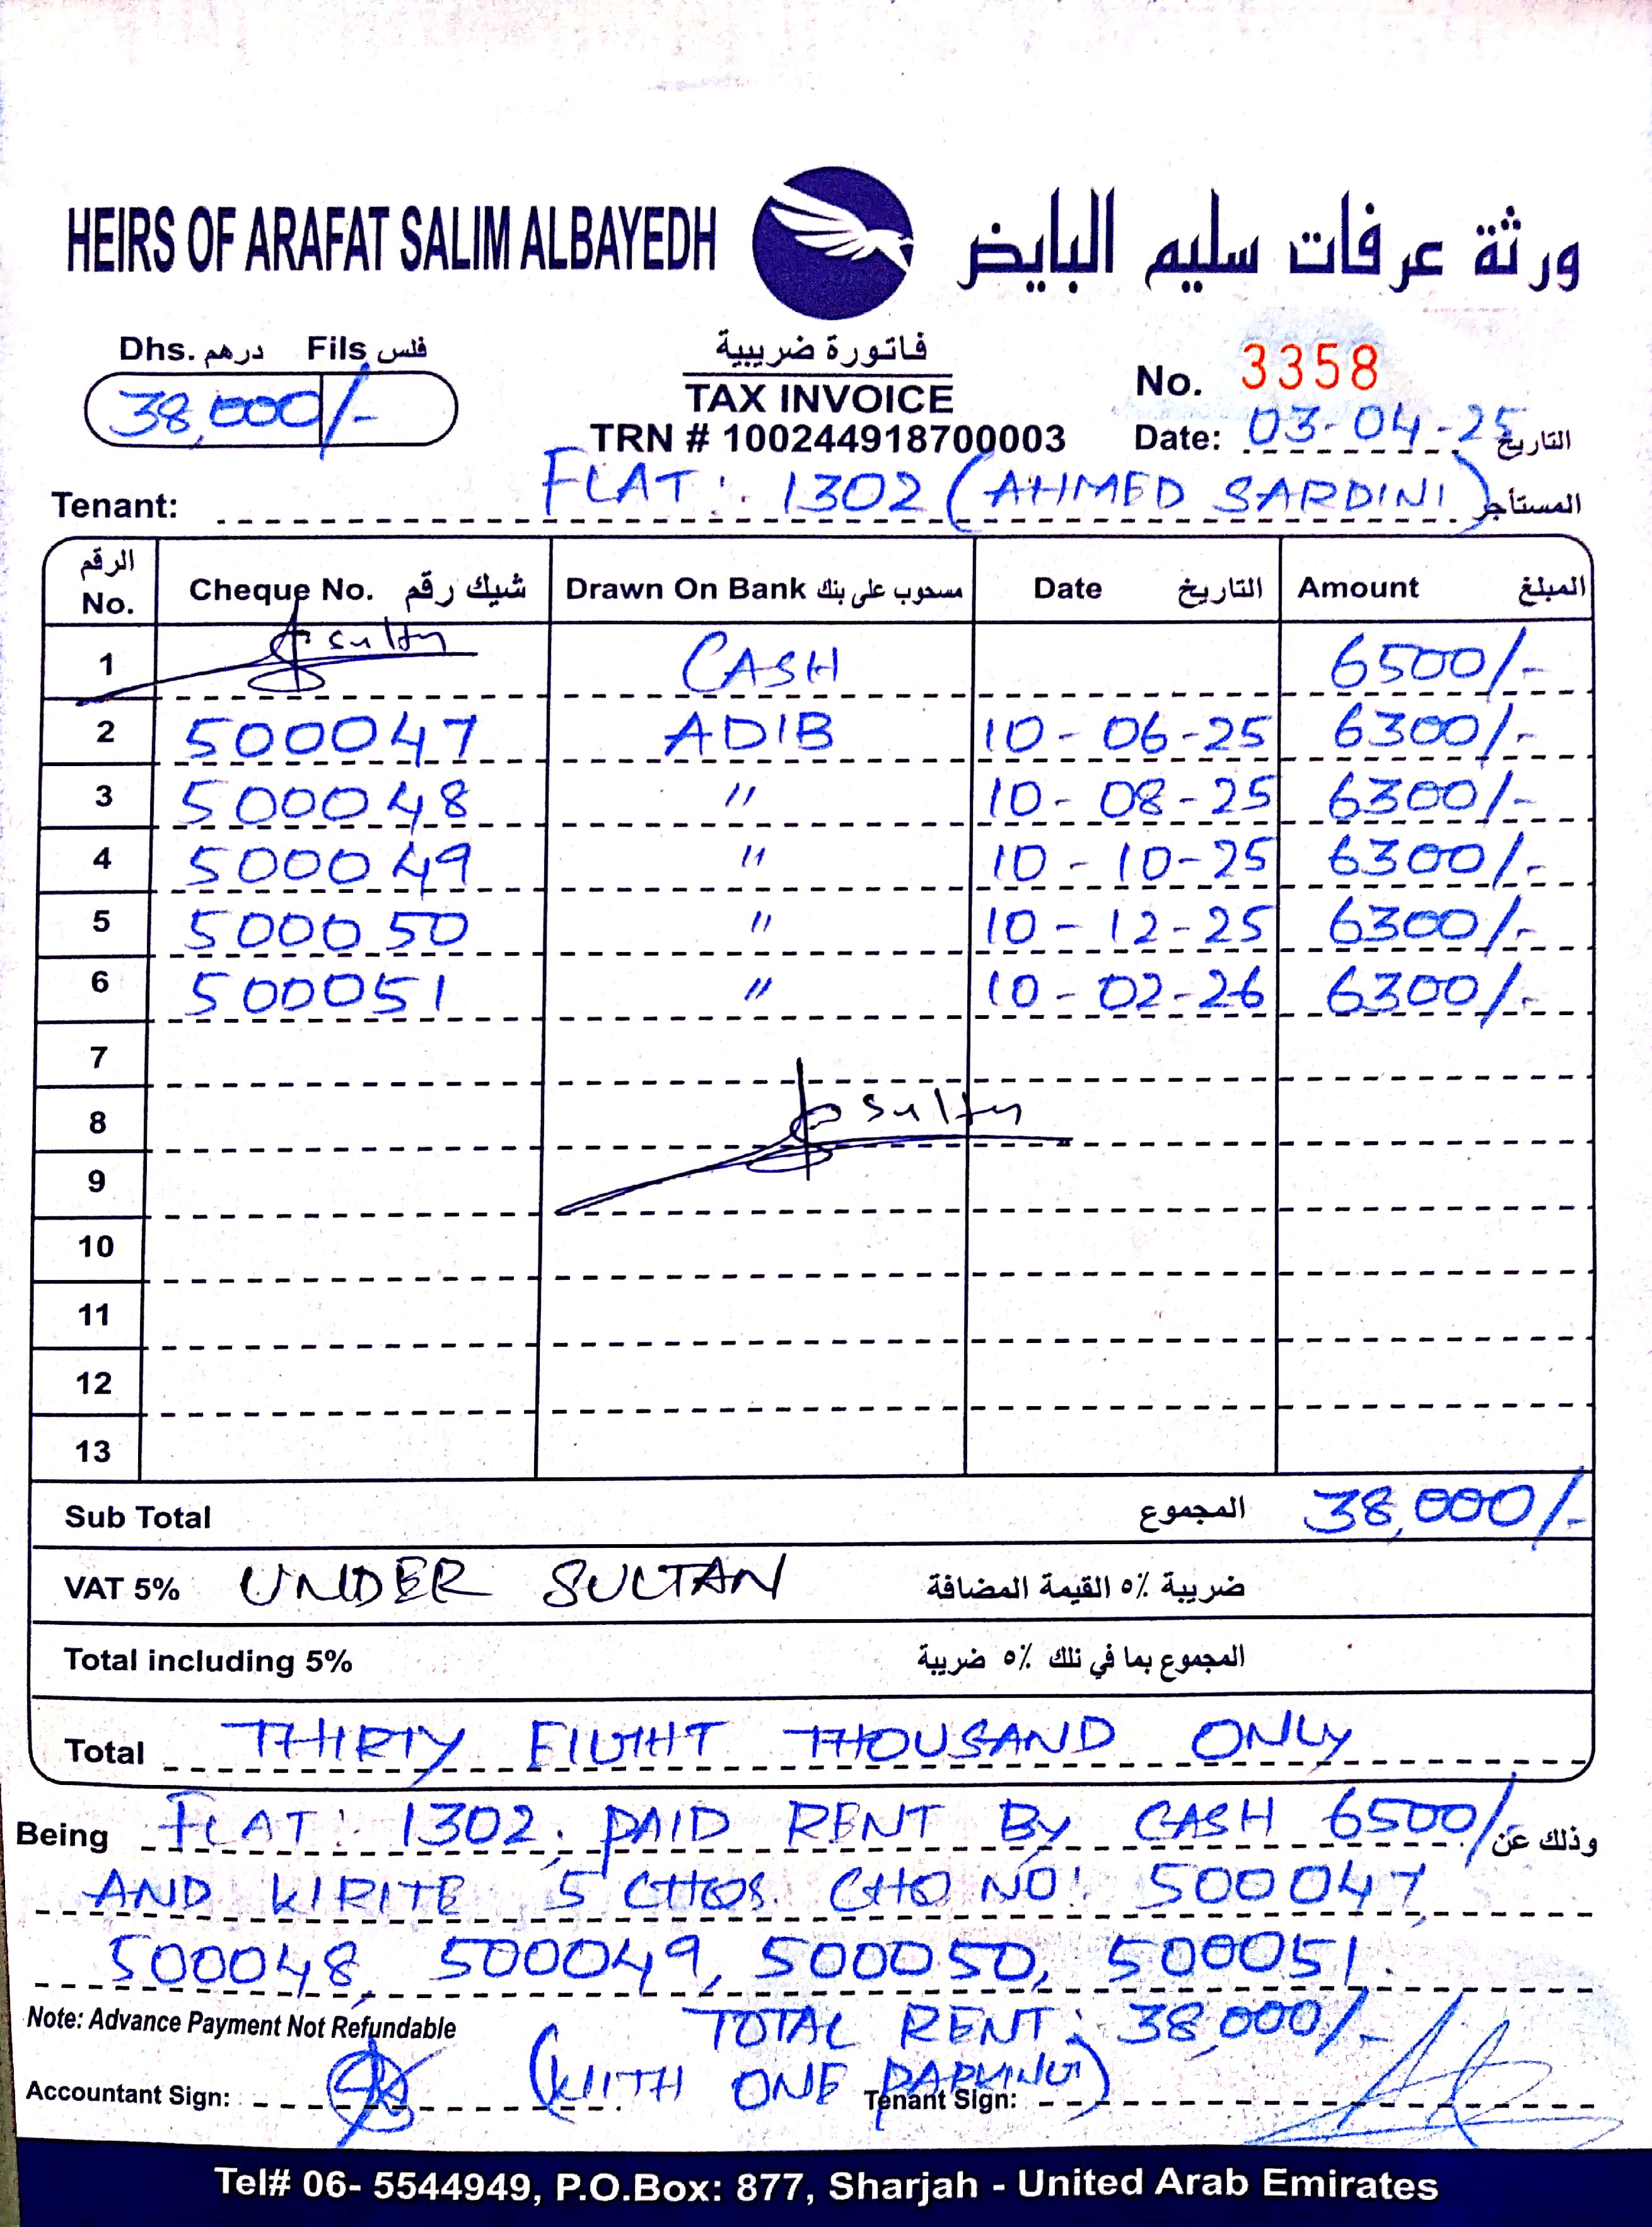 HEIRS OF ARAFAT SALIM ALBAYEDH ورثة عرفات سليم البايض
Dhs. درهم Fils فلس
38,000/-
فاتورة ضريبية
TAX INVOICE
TRN # 100244918700003
No. 3358
Date: 03-04-25 التاريخ
Tenant: FLAT: 1302 (AHMED SARDINI) المستأجر
الرقم No. Cheque No. شيك رقم Drawn On Bank مسحوب على بنك Date التاريخ Amount المبلغ
1 CASH 6500/-
2 500047 ADIB 10-06-25 6300/-
3 500048 " 10-08-25 6300/-
4 500049 " 10-10-25 6300/-
5 500050 " 10-12-25 6300/-
6 500051 " 10-02-26 6300/-
7
8
9
10
11
12
13
Sub Total المجموع 38,000/-
VAT 5% UNDER SULTAN ضريبة ٥٪ القيمة المضافة
Total including 5% المجموع بما في تلك ٥٪ ضريبة
Total THIRTY EIGHT THOUSAND ONLY
Being FLAT: 1302. PAID RENT By CASH 6500/ وذلك عن
AND 5 CHQS. CHQ NO: 500047,
500048, 500049, 500050, 500051.
Note: Advance Payment Not Refundable TOTAL RENT: 38,000/-
(WITH ONE PARKING)
Accountant Sign: Tenant Sign:
Tel# 06- 5544949, P.O.Box: 877, Sharjah - United Arab Emirates